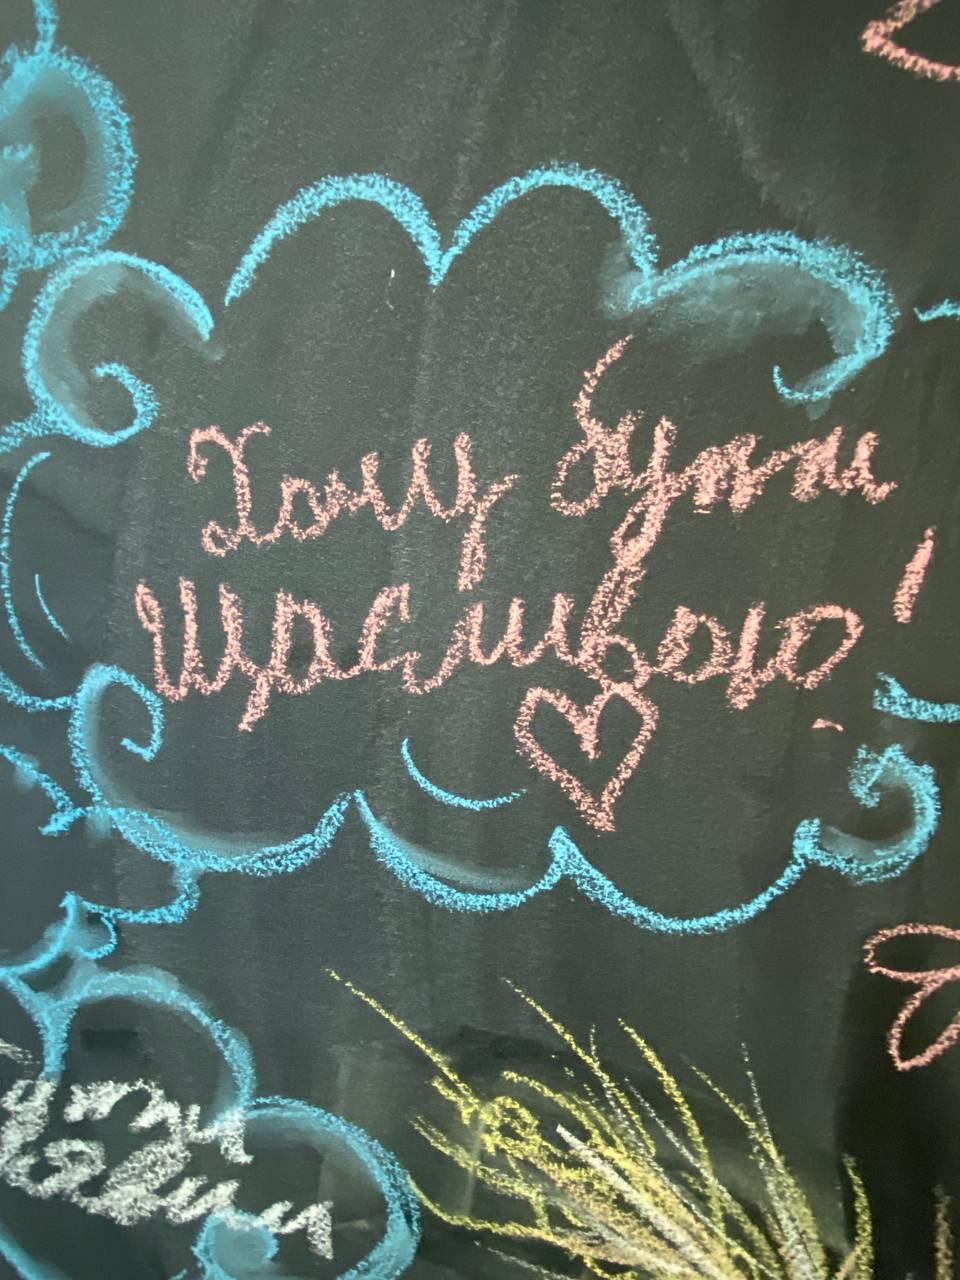 Хочу бути
щасливою!